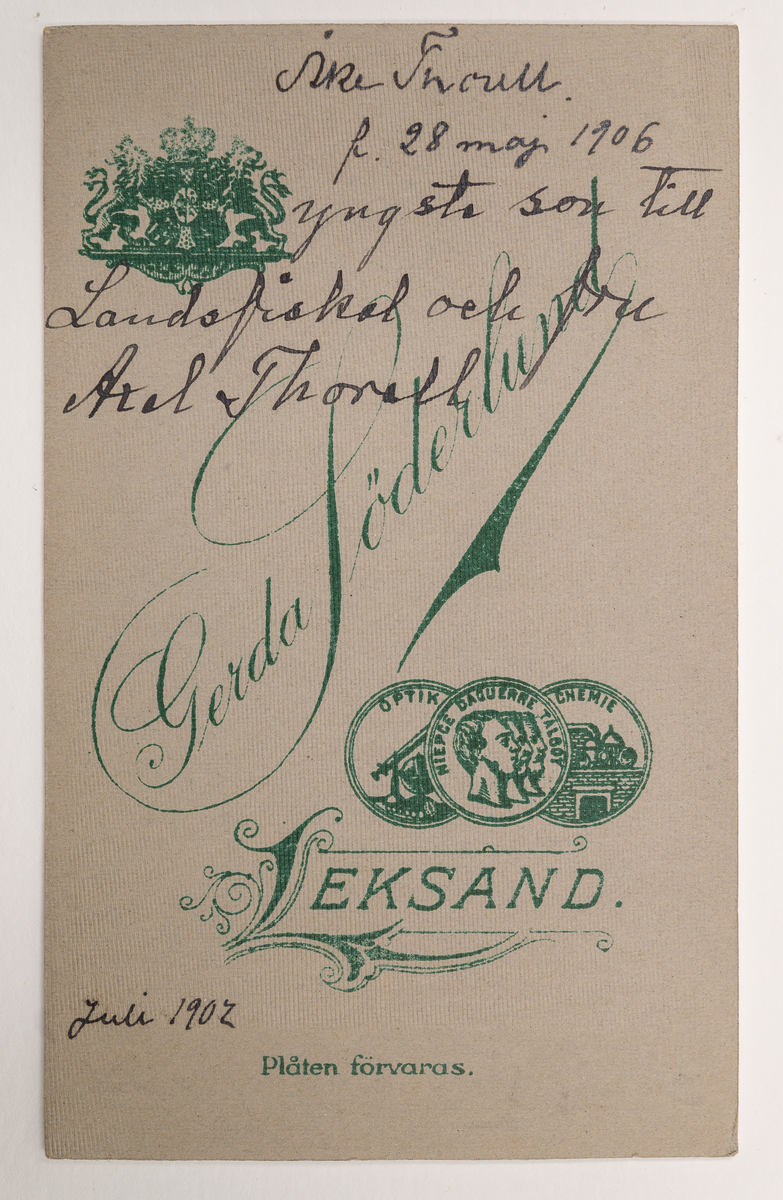 Åke Thorell.
f. 28 maj 1906
yngste son till
Landsfiskal och fru
Axel Thorell
Gerda Söderlund
OPTIK
NIEPCE DAGUERRE TALBOT
CHEMIE
LEKSAND.
Juli 1907
Plåten förvaras.